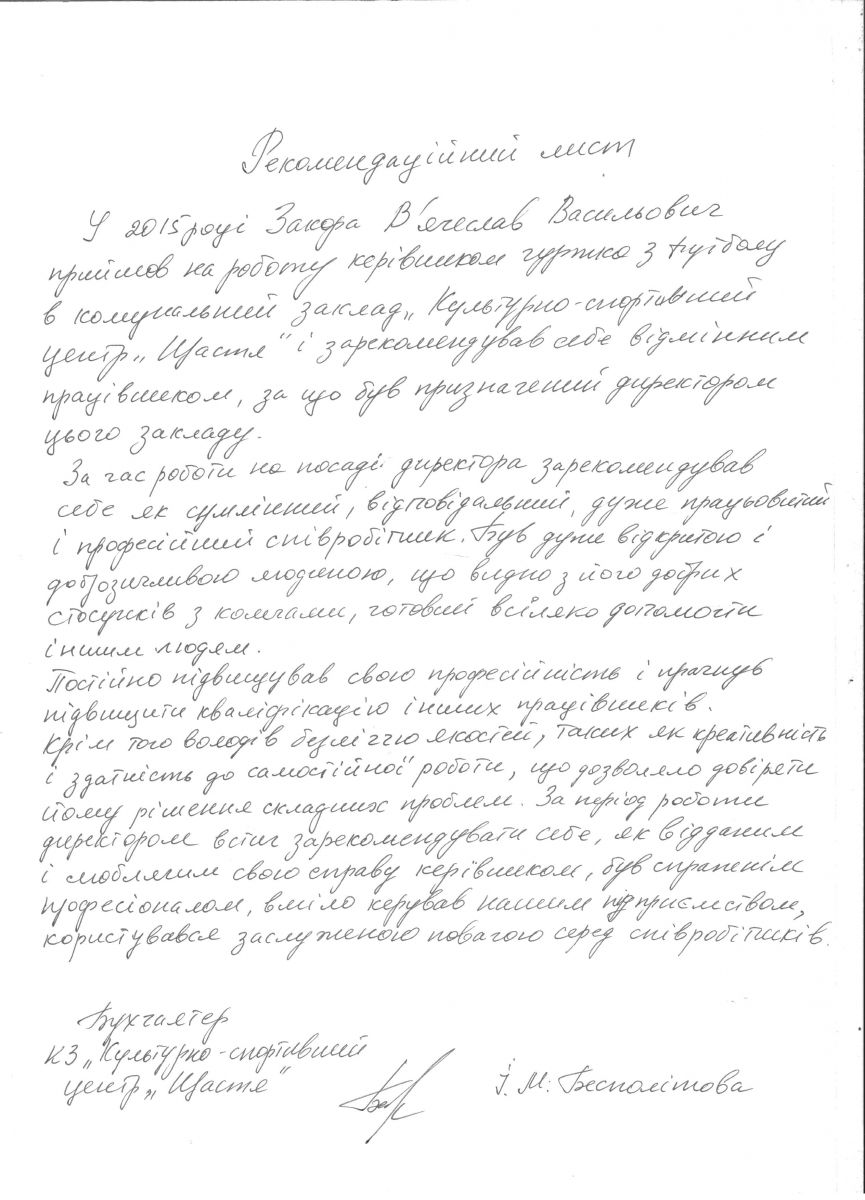 Рекомендаційний лист
У 2015 році Закора В'ячеслав Васильович
прийшов на роботу керівником гуртка з футболу
в комунальний заклад „Культурно-спортивний
центр „Щастя" і зарекомендував себе відмінним
працівником, за що був призначений директором
цього закладу.
За час роботи на посаді директора зарекомендував
себе як сумлінний, відповідальний, дуже працьовитий
і професійний співробітник. Був дуже відкритою і
доброзичливою людиною, що видно з його добрих
стосунків з колегами, готовий всіляко допомогти
іншим людям.
Постійно підвищував свою професійність і прагнув
підвищити кваліфікацію інших працівників.
Крім того володів безліччю якостей, таких як креативність
і здатність до самостійної роботи, що дозволяло довіряти
йому рішення складних проблем. За період роботи
директором встиг зарекомендувати себе, як відданим
і люблячим свою справу керівником, був справжнім
професіоналом, вміло керував нашим підприємством,
користувався заслуженою повагою серед співробітників.
Бухгалтер
КЗ „Культурно-спортивний
центр „Щастя"
І. М. Бесполітова